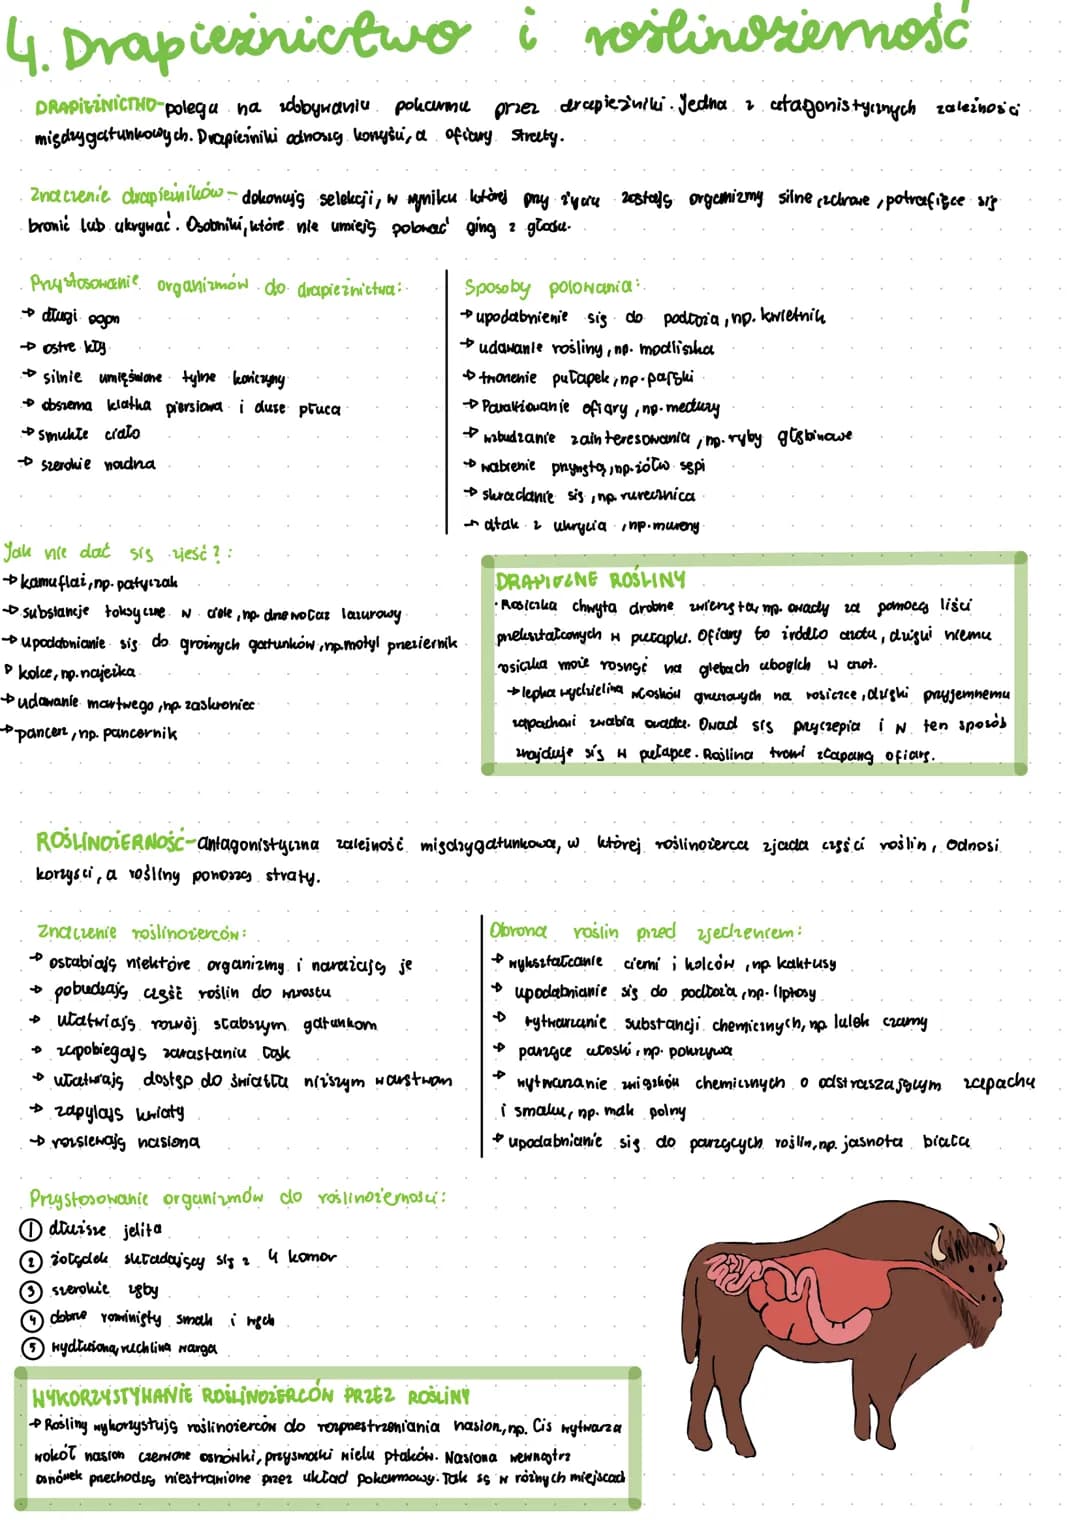 4. Drapieżnictwo i roślinożerność
DRAPIEŻNICTWO- polega na zdobywaniu pokarmu przez drapieżniki. Jedna z atagonistycznych zależności
międzygatunkowych. Drapieżniki odnoszą korzyści, a ofiary straty.
Znaczenie drapieżników- dokonują selekcji, w wyniku której przy życiu zostają organizmy silne, zdrowe, potrafiące się
bronić lub ukrywać. Osobniki, które nie umieją polować giną z głodu.
Przystosowanie organizmów do drapieżnictwa:
→ długi ogon
→ ostre kły
→ silnie umięśnione tylne kończyny
→ obszerna klatka piersiowa i duże płuca
→ smukłe ciało
→ szerokie nozdrza
Sposoby polowania:
→ upodabnienie się do podłoża, np. kwietnik
→ udawanie rośliny, np. modliszka
→ tworzenie pułapek, np. pająki
→ Paraliżowanie ofiary, np. meduzy
→ wzbudzanie zainteresowania, np. ryby głębinowe
→ wabienie przynętą, np. żółw sępi
→ skradanie się, np. rurecznica
→ atak z ukrycia, np. mureny
Jak nie dać się zjeść?:
→ kamuflaż, np. patyczak
→ substancje toksyczne w ciele, np. drzewołaz lazurowy
→ upodabnianie się do groźnych gatunków, np. motyl przeziernik
→ kolce, np. najeżka
→ udawanie martwego, np. zaskroniec
→ pancerz, np. pancernik
DRAPIEŻNE ROŚLINY
· Rosiczka chwyta drobne zwierzęta, np. owady za pomocą liści
przekształconych w pułapki. Ofiary to źródło azotu, dzięki niemu
rosiczka może rosnąć na glebach ubogich w azot.
→ lepka wydzielina włosków gruczowych na rosiczce, dzięki przyjemnemu
zapachowi zwabia owada. Owad się przyczepia i w ten sposób
znajduje się w pułapce. Roślina trawi złapaną ofiarę.
ROŚLINOŻERNOŚĆ- antagonistyczna zależność międzygatunkowa, w której roślinożerca zjada części roślin, odnosi
korzyści, a rośliny ponoszą straty.
Znaczenie roślinożerców:
→ osłabiają niektóre organizmy i narażają je
→ pobudzają część roślin do wzrostu
→ ułatwiają rozwój słabszym gatunkom
→ zapobiegają zarastaniu łąk
→ ułatwiają dostęp do światła niższym warstwom
→ zapylają kwiaty
→ rozsiewają nasiona
Obrona roślin przed zjedzeniem:
→ wykształcanie cierni i kolców, np. kaktusy
→ upodabnianie się do podłoża, np. liptosy
→ wytwarzanie substancji chemicznych, np. lulek czarny
→ parzące włoski, np. pokrzywa
→ wytwarzanie związków chemicznych o odstraszającym zapachu
i smaku, np. mak polny
→ upodabnianie się do parzących roślin, np. jasnota biała
Przystosowanie organizmów do roślinożerności:
1 dłuższe jelita
2 żołądek składający się z 4 komor
3 szerokie zęby
4 dobrze rozwinięty smak i węch
5 wydłużona, ruchliwa warga
WYKORZYSTYWANIE ROŚLINOŻERCÓW PRZEZ ROŚLINY
→ Rośliny wykorzystują roślinożerców do rozprzestrzeniania nasion, np. Cis wytwarza
wokół nasion czerwone osnówki, przysmaki wielu ptaków. Nasiona wewnątrz
osnówek przechodzą niestrawione przez układ pokarmowy. Tak są w różnych miejscach